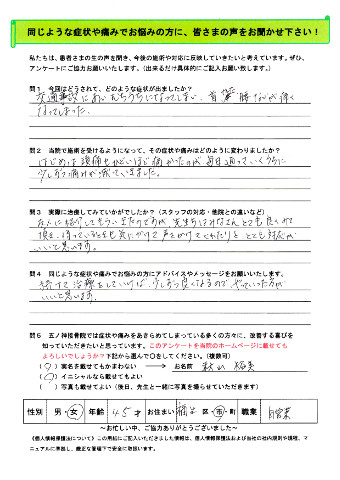 同じような症状や痛みでお悩みの方に、皆さまの声をお聞かせ下さい！
私たちは、患者さまの生の声を聞き、今後の施術や対応に反映していきたいと考えています。ぜひ、
アンケートにご協力お願いいたします。（出来るだけ具体的にご記入お願い致します。）
問１ 今回はどうされて、どのような症状が出ましたか？
交通事故にあい、むちうちになってしまい、首 腰 が痛く
なってしまった。
問２ 当院で施術を受けるようになって、その症状や痛みはどのように変わりましたか？
はじめは頭痛もひどいほど痛かったのが、毎日通っていくうちに
少しずつ痛みが減っていきました。
問３ 実際に治療してみていかがでしたか？（スタッフの対応・他院との違いなど）
友人に紹介してもらいきたのですが、先生方はみなさんとても良くして
頂き、待っているときも気にかけて声をかけてくれたりと とても対応が
いいと思います。
問４ 同じような症状や痛みでお悩みの方にアドバイスやメッセージをお願いいたします。
続けて治療をしていけば、少しずつ良くなるので、やっていった方が
いいと思います。
問５ 五ノ神接骨院では症状や痛みをあきらめてしまっている多くの方々に、改善する喜びを
知っていただきたいと思っています。このアンケートを当院のホームページに載せても
よろしいでしょうか？下記から選んで○をしてください。（複数可）
（○）実名を載せてもかまわない → お名前
（○）イニシャルなら載せてもよい
（ ）写真も載せてよい（後日、先生と一緒に写真を撮らせていただきます）
性別 男・女 年齢 45才 お住まい 福生 区・市・町 職業 自営業
～お忙しい中、ご協力ありがとうございました～
《個人情報保護法について》この用紙にご記入いただきました情報は、個人情報保護法および当社の社内規則や規程、マ
ニュアルに準拠し、厳正な管理下で安全に取扱います。